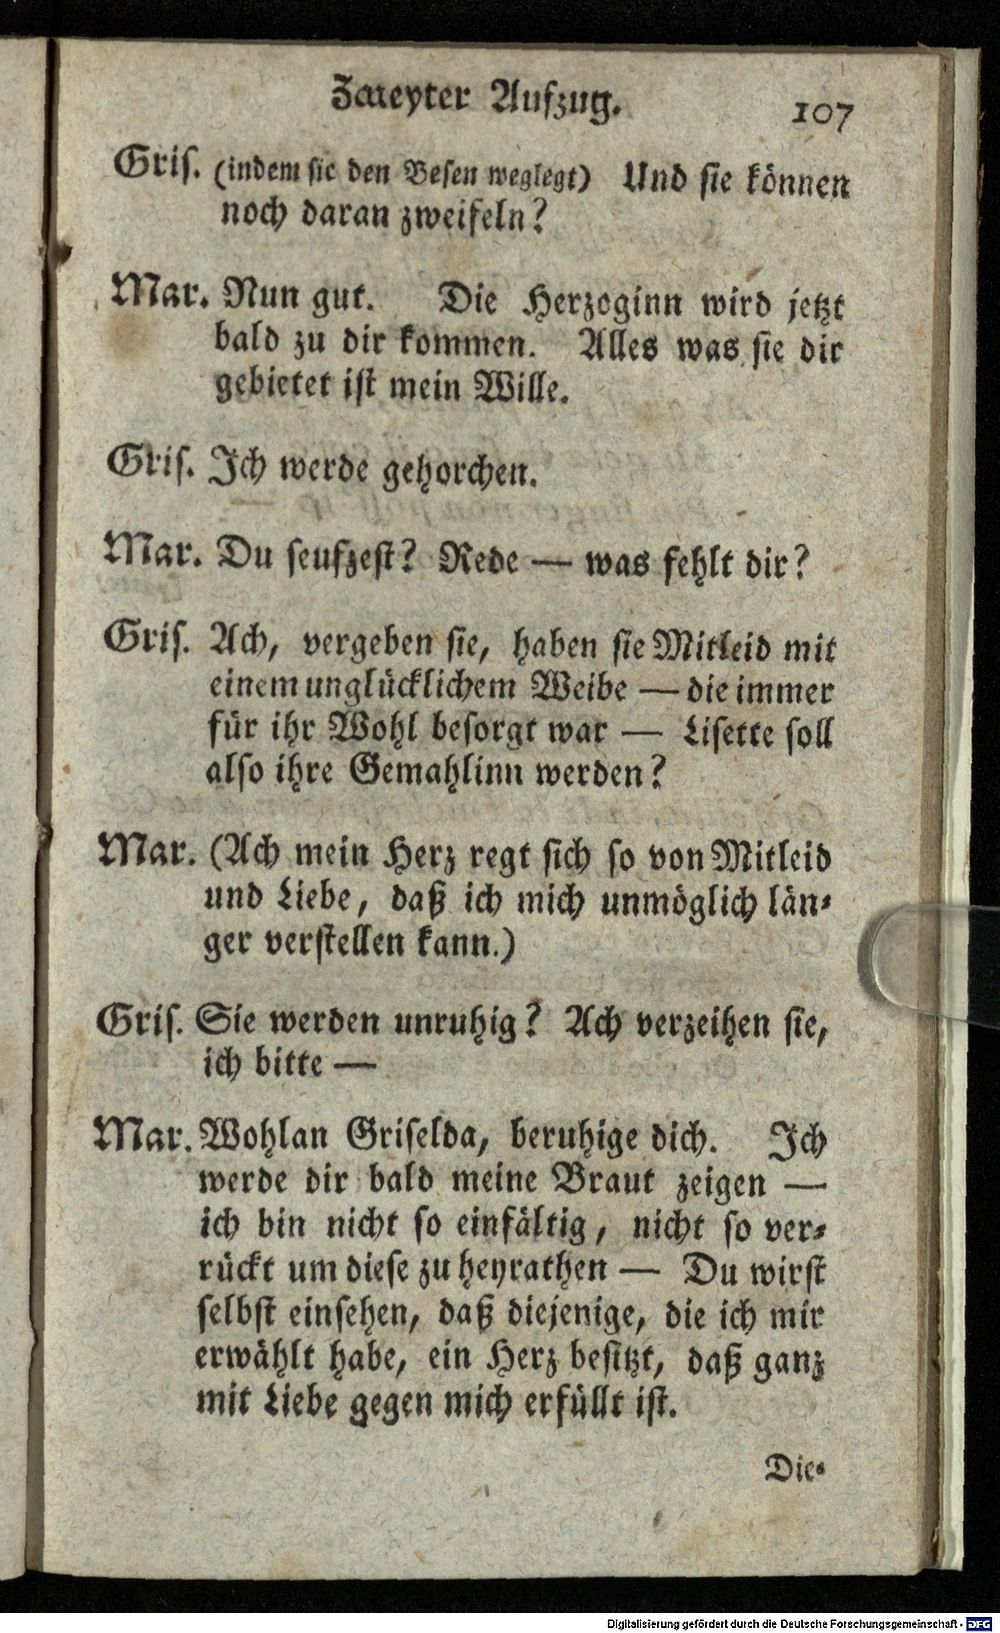 Zweyter Aufzug.
107
Gris. (indem sie den Besen weglegt) Und sie können
noch daran zweifeln?
Mar. Nun gut. Die Herzoginn wird jetzt
bald zu dir kommen. Alles was sie dir
gebietet ist mein Wille.
Gris. Ich werde gehorchen.
Mar. Du seufzest? Rede — was fehlt dir?
Gris. Ach, vergeben sie, haben sie Mitleid mit
einem unglücklichem Weibe — die immer
für ihr Wohl besorgt war — Lisette soll
also ihre Gemahlinn werden?
Mar. (Ach mein Herz regt sich so von Mitleid
und Liebe, daß ich mich unmöglich län-
ger verstellen kann.)
Gris. Sie werden unruhig? Ach verzeihen sie,
ich bitte —
Mar. Wohlan Griselda, beruhige dich. Ich
werde dir bald meine Braut zeigen —
ich bin nicht so einfältig, nicht so ver-
rückt um diese zu heyrathen — Du wirst
selbst einsehen, daß diejenige, die ich mir
erwählt habe, ein Herz besitzt, daß ganz
mit Liebe gegen mich erfüllt ist.
Die-
Digitalisierung gefördert durch die Deutsche Forschungsgemeinschaft - DFG